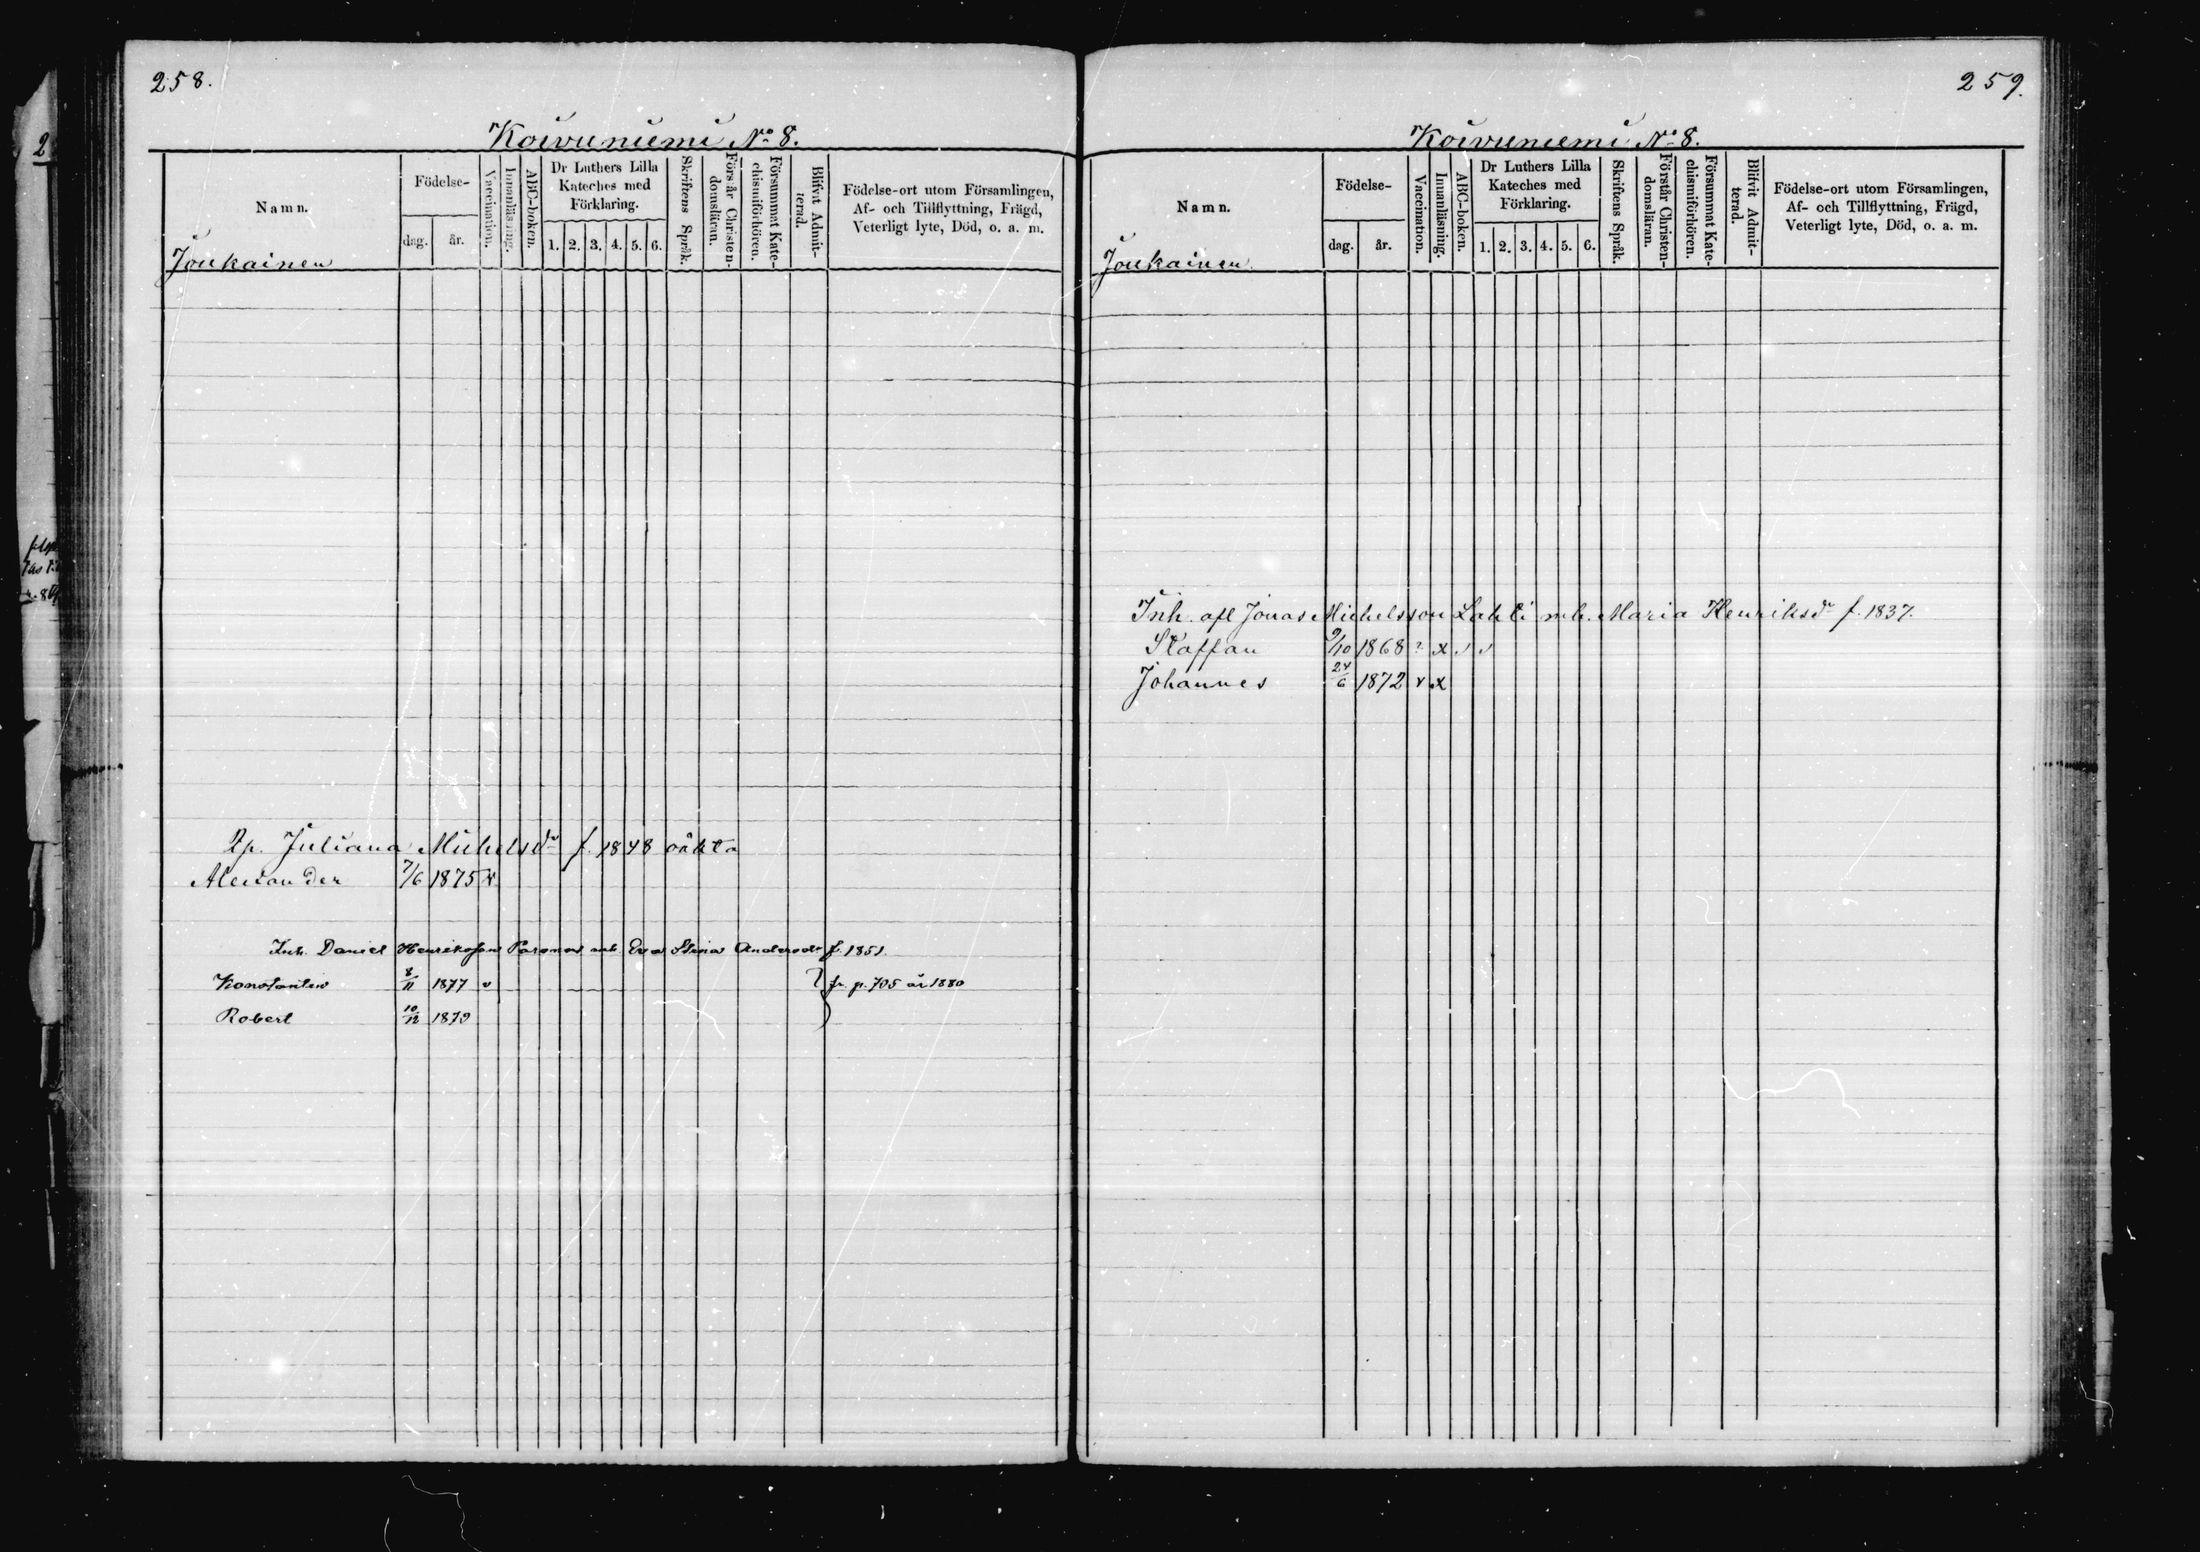 258.
Koivuniemi No 8.
Namn.
Födelse-
dag.
år.
Vaccination.
Innanläsning.
ABC-boken.
Dr Luthers Lilla
Kateches med
Förklaring.
1. 2. 3. 4. 5. 6.
Skriftens Språk.
Förstår Christen-
domsläran.
Försummat Kate-
chismiförhören.
Blifvit Admit-
terad.
Födelse-ort utom Församlingen,
Af- och Tillflyttning, Frägd,
Veterligt lyte, Död, o. a. m.
Joukainen
Qp. Juliana Michelsdr f. 1848 oäkta
Alexander 7/6 1875 x
Inh. Daniel Henriksson mh. Eva Stina Andersdr f. 1851.
Konstantin 8/11 1877 v } fr. p. 705 år 1880
Robert 10/12 1879
259.
Koivuniemi No 8.
Namn.
Födelse-
dag.
år.
Vaccination.
Innanläsning.
ABC-boken.
Dr Luthers Lilla
Kateches med
Förklaring.
1. 2. 3. 4. 5. 6.
Skriftens Språk.
Förstår Christen-
domsläran.
Försummat Kate-
chismiförhören.
Blifvit Admit-
terad.
Födelse-ort utom Församlingen,
Af- och Tillflyttning, Frägd,
Veterligt lyte, Död, o. a. m.
Joukainen
Inh. afl Jonas Michelsson Lahti mh. Maria Henriksdr f. 1837.
Staffan 9/10 1868 ? x v v
Johannes 24/6 1872 x x